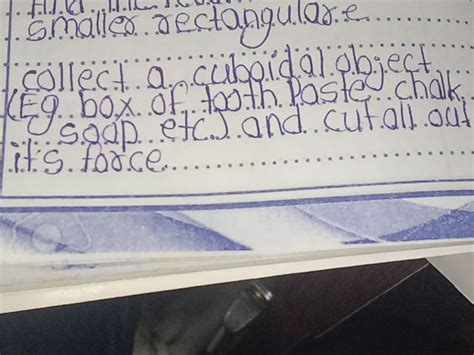 smaller rectangular.e
collect a cuboidal object
(Eg box of tooth paste, chalk,
soap etc.) and cut all out
it's force